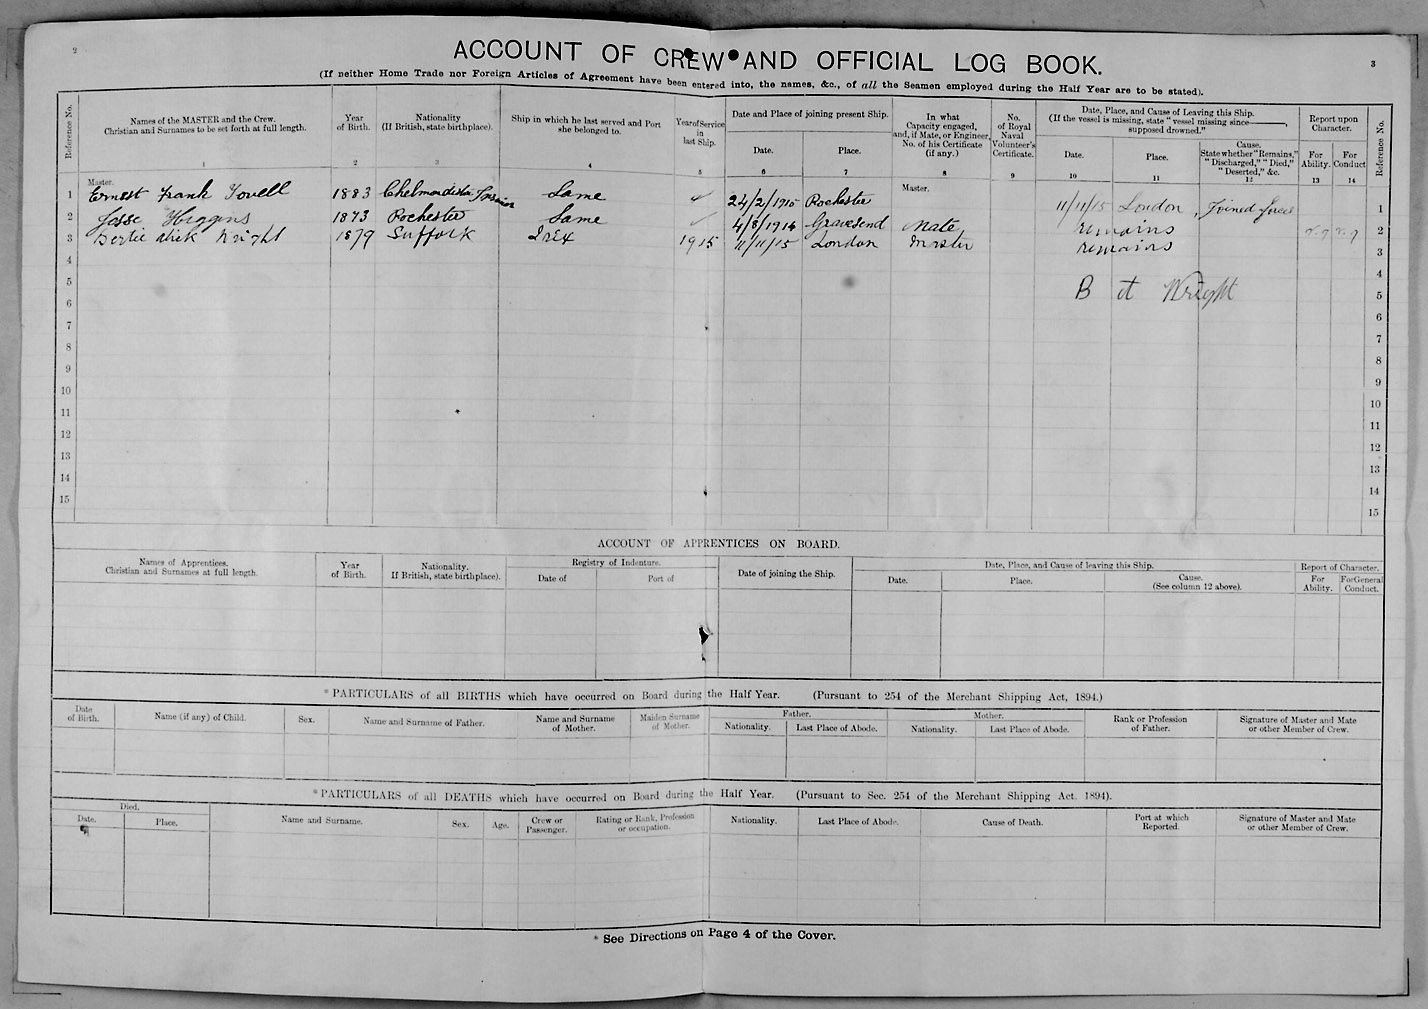 2
3
ACCOUNT OF CREW AND OFFICIAL LOG BOOK.
(If neither Home Trade nor Foreign Articles of Agreement have been entered into, the names, &c., of all the Seamen employed during the Half Year are to be stated).
Reference No.
Names of the MASTER and the Crew.
Christian and Surnames to be set forth at full length.
Year
of Birth.
Nationality
(If British, state birthplace).
Ship in which he last served and Port
she belonged to.
Year of Service
in
last Ship.
Date and Place of joining present Ship.
Date.
Place.
In what
Capacity engaged,
and, if Mate, or Engineer,
No. of his Certificate
(if any.)
No.
of Royal
Naval
Volunteer's
Certificate.
Date, Place, and Cause of Leaving this Ship.
(If the vessel is missing, state "vessel missing since———,
supposed drowned."
Date.
Place.
Cause.
State whether "Remains,"
"Discharged," "Died,"
"Deserted," &c.
Report upon
Character.
For
Ability.
For
Conduct
Reference No.
1 2 3 4 5 6 7 8 9 10 11 12 13 14
Master.
Master.
1 Ernest Frank Tovell 1883 Same 24/2/1915 Rochester 11/11/15 London, Joined 1
2 Jesse Higgins 1873 Rochester Same 4/8/1914 Gravesend Mate remains v.g v.g 2
3 Bertie Alick Wright 1879 Suffolk Irex 1915 11/11/15 London Master remains 3
4 4
B A Wright
5 5
6 6
7 7
8 8
9 9
10 10
11 11
12 12
13 13
14 14
15 15
ACCOUNT OF APPRENTICES ON BOARD.
Names of Apprentices.
Christian and Surnames at full length.
Year
of Birth.
Nationality.
If British, state birthplace).
Registry of Indenture.
Date of
Port of
Date of joining the Ship.
Date, Place, and Cause of leaving this Ship.
Date.
Place.
Cause.
(See column 12 above).
Report of Character.
For
Ability.
For General
Conduct.
*PARTICULARS of all BIRTHS which have occurred on Board during the Half Year. (Pursuant to 254 of the Merchant Shipping Act, 1894.)
Date
of Birth.
Name (if any) of Child.
Sex.
Name and Surname of Father.
Name and Surname
of Mother.
Maiden Surname
of Mother.
Father.
Nationality.
Last Place of Abode.
Mother.
Nationality.
Last Place of Abode.
Rank or Profession
of Father.
Signature of Master and Mate
or other Member of Crew.
*PARTICULARS of all DEATHS which have occurred on Board during the Half Year. (Pursuant to Sec. 254 of the Merchant Shipping Act, 1894).
Died.
Date.
Place.
Name and Surname.
Sex.
Age.
Crew or
Passenger.
Rating or Rank, Profession
or occupation.
Nationality.
Last Place of Abode.
Cause of Death.
Port at which
Reported.
Signature of Master and Mate
or other Member of Crew.
* See Directions on Page 4 of the Cover.